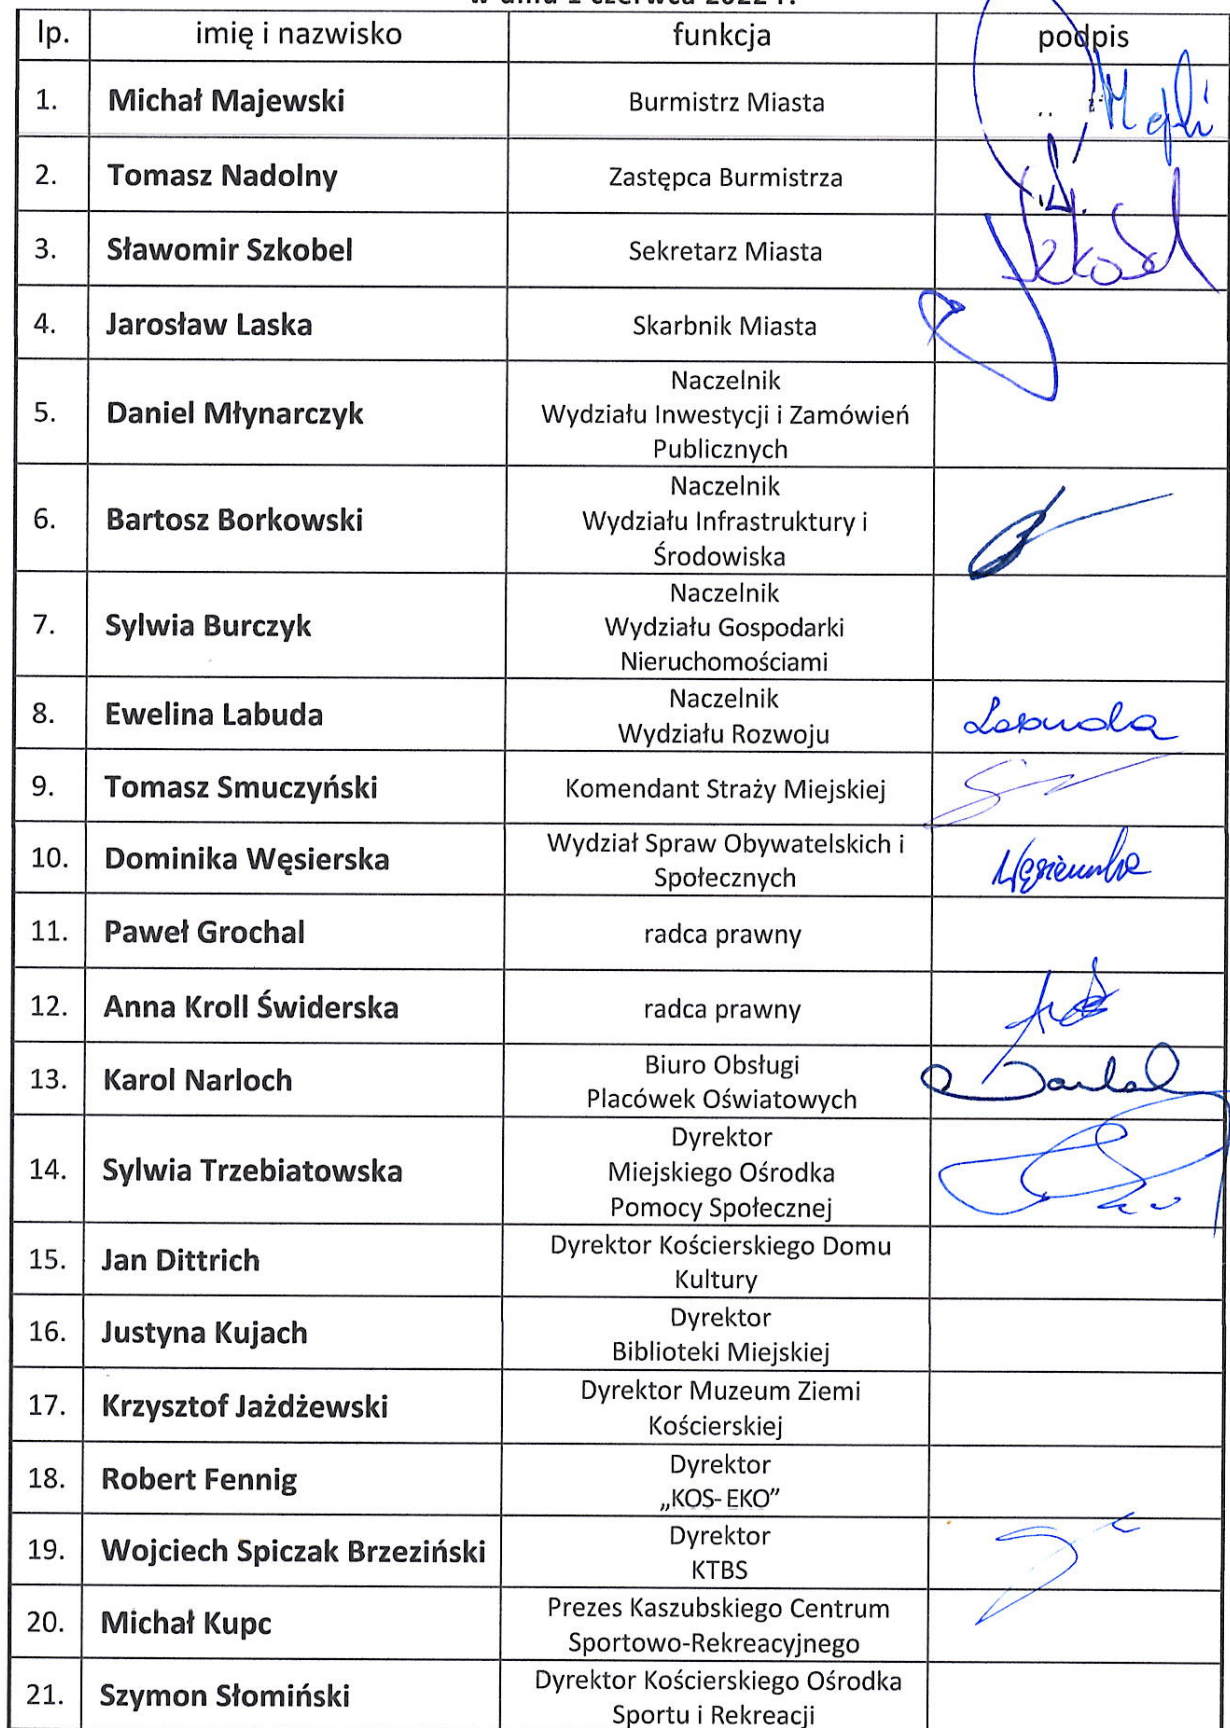 w dniu 1 czerwca 2022 r.
lp. imię i nazwisko funkcja podpis
1. Michał Majewski Burmistrz Miasta
2. Tomasz Nadolny Zastępca Burmistrza
3. Sławomir Szkobel Sekretarz Miasta Szkobel
4. Jarosław Laska Skarbnik Miasta
5. Daniel Młynarczyk Naczelnik
Wydziału Inwestycji i Zamówień
Publicznych
6. Bartosz Borkowski Naczelnik
Wydziału Infrastruktury i
Środowiska
7. Sylwia Burczyk Naczelnik
Wydziału Gospodarki
Nieruchomościami
8. Ewelina Labuda Naczelnik
Wydziału Rozwoju Labuda
9. Tomasz Smuczyński Komendant Straży Miejskiej
10. Dominika Węsierska Wydział Spraw Obywatelskich i
Społecznych Węsierska
11. Paweł Grochal radca prawny
12. Anna Kroll Świderska radca prawny
13. Karol Narloch Biuro Obsługi
Placówek Oświatowych
14. Sylwia Trzebiatowska Dyrektor
Miejskiego Ośrodka
Pomocy Społecznej
15. Jan Dittrich Dyrektor Kościerskiego Domu
Kultury
16. Justyna Kujach Dyrektor
Biblioteki Miejskiej
17. Krzysztof Jażdżewski Dyrektor Muzeum Ziemi
Kościerskiej
18. Robert Fennig Dyrektor
„KOS- EKO”
19. Wojciech Spiczak Brzeziński Dyrektor
KTBS
20. Michał Kupc Prezes Kaszubskiego Centrum
Sportowo-Rekreacyjnego
21. Szymon Słomiński Dyrektor Kościerskiego Ośrodka
Sportu i Rekreacji